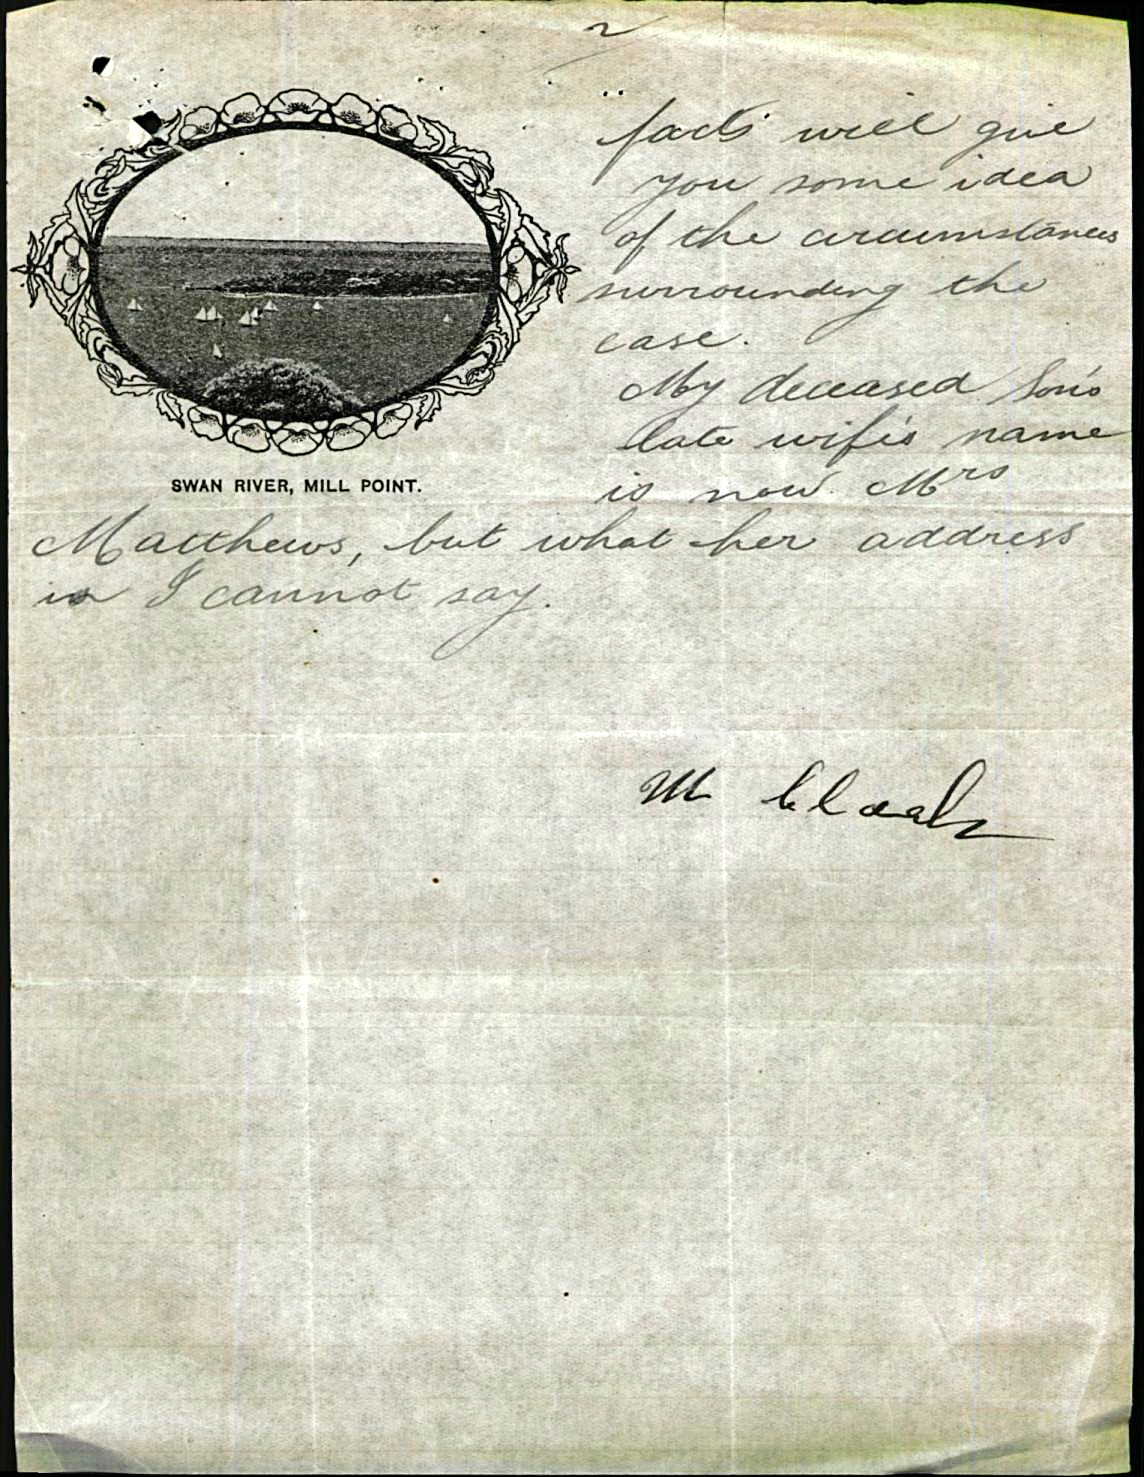 2
facts will give
you some idea
of the circumstances
surrounding the
case.
My deceased Son's
late wife's name
is now Mrs
SWAN RIVER, MILL POINT.
Matthews, but what her address
is I cannot say.
M